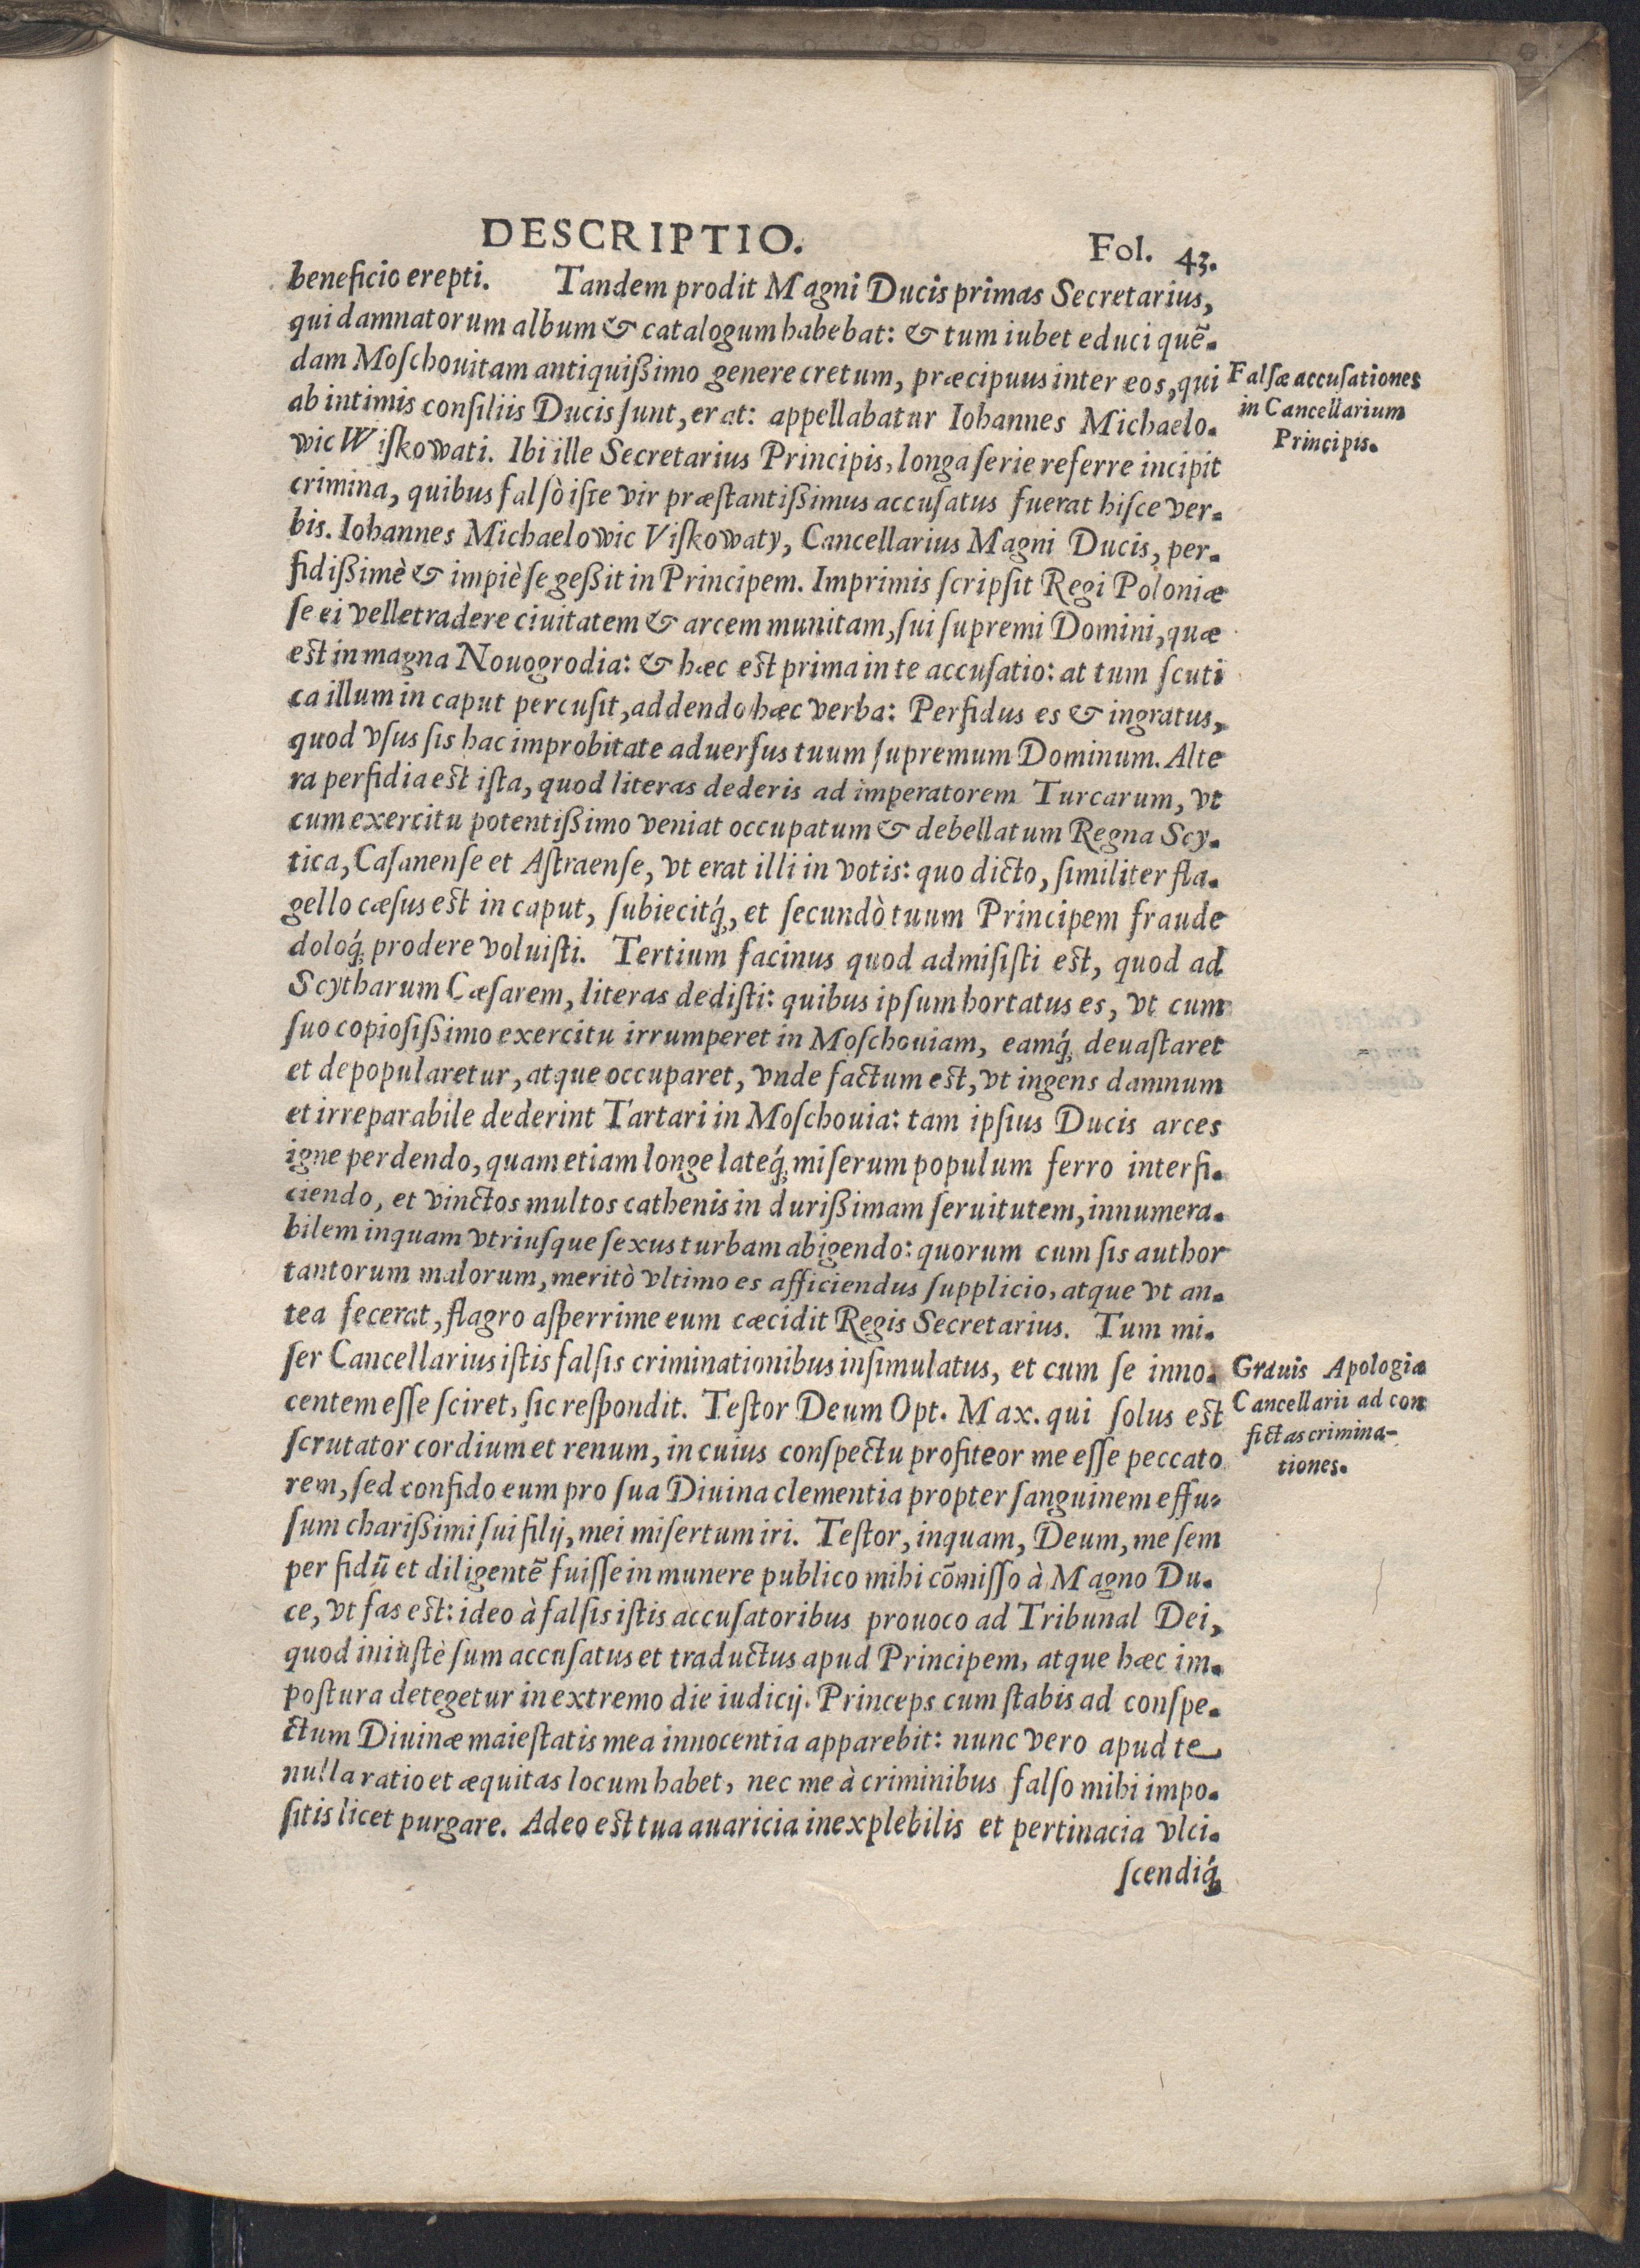 DESCRIPTIO. Fol. 43.
beneficio erepti. Tandem prodit Magni Ducis primas Secretarius,
qui damnatorum album & catalogum habebat: & tum iubet educi quẽ-
dam Moſchouitam antiquißimo genere cretum, præcipuus inter eos, qui
ab intimis conſiliis Ducis ſunt, erat: appellabatur Iohannes Michaelo-
wic Wiſkowati. Ibi ille Secretarius Principis, longa ſerie referre incipit
crimina, quibus falſò iſte vir præſtantißimus accuſatus fuerat hiſce ver-
bis. Iohannes Michaelowic Viſkowaty, Cancellarius Magni Ducis, per-
fidißimè & impiè ſe geßit in Principem. Imprimis ſcripſit Regi Poloniæ
ſe ei velle tradere ciuitatem & arcem munitam, ſui ſupremi Domini, quæ
eſt in magna Nouogrodia: & hæc eſt prima in te accuſatio: at tum ſcuti
ca illum in caput percuſit, addendo hæc verba: Perfidus es & ingratus,
quod vſus ſis hac improbitate aduerſus tuum ſupremum Dominum. Alte
ra perfidia eſt iſta, quod literas dederis ad imperatorem Turcarum, vt
cum exercitu potentißimo veniat occupatum & debellatum Regna Scy-
tica, Caſanenſe et Aſtraenſe, vt erat illi in votis: quo dicto, ſimiliter fla-
gello cæſus eſt in caput, ſubiecitq́;, et ſecundò tuum Principem fraude
doloq́; prodere voluiſti. Tertium facinus quod admiſiſti eſt, quod ad
Scytharum Cæſarem, literas dediſti: quibus ipſum hortatus es, vt cum
ſuo copioſißimo exercitu irrumperet in Moſchouiam, eamq́; deuaſtaret
et depopularetur, atque occuparet, vnde factum eſt, vt ingens damnum
et irreparabile dederint Tartari in Moſchouia: tam ipſius Ducis arces
igne perdendo, quam etiam longe lateq́; miſerum populum ferro interfi-
ciendo, et vinctos multos cathenis in durißimam ſeruitutem, innumera-
bilem inquam vtriuſque ſexus turbam abigendo: quorum cum ſis author
tantorum malorum, meritò vltimo es afficiendus ſupplicio, atque vt an-
tea fecerat, flagro aſperrime eum cæcidit Regis Secretarius. Tum mi-
ſer Cancellarius iſtis falſis criminationibus inſimulatus, et cum ſe inno-
centem eſſe ſciret, ſic reſpondit. Teſtor Deum Opt. Max. qui ſolus eſt
ſcrutator cordium et renum, in cuius conſpectu profiteor me eſſe peccato
rem, ſed confido eum pro ſua Diuina clementia propter ſanguinem effu-
ſum charißimi ſui filij, mei miſertum iri. Teſtor, inquam, Deum, me ſem
per fidũ et diligentẽ fuiſſe in munere publico mihi cõmiſſo à Magno Du-
ce, vt fas eſt: ideo à falſis iſtis accuſatoribus prouoco ad Tribunal Dei,
quod iniuſtè ſum accuſatus et traductus apud Principem, atque hæc im-
poſtura detegetur in extremo die iudicij. Princeps cum ſtabis ad conſpe-
ctum Diuinæ maieſtatis mea innocentia apparebit: nunc vero apud te
nulla ratio et æquitas locum habet, nec me à criminibus falſo mihi impo-
ſitis licet purgare. Adeo eſt tua auaricia inexplebilis et pertinacia vlci-
ſcendiq́;
Falſæ accuſationes
in Cancellarium
Principis.
Grauis Apologia
Cancellarii ad con
fictas crimina-
tiones.